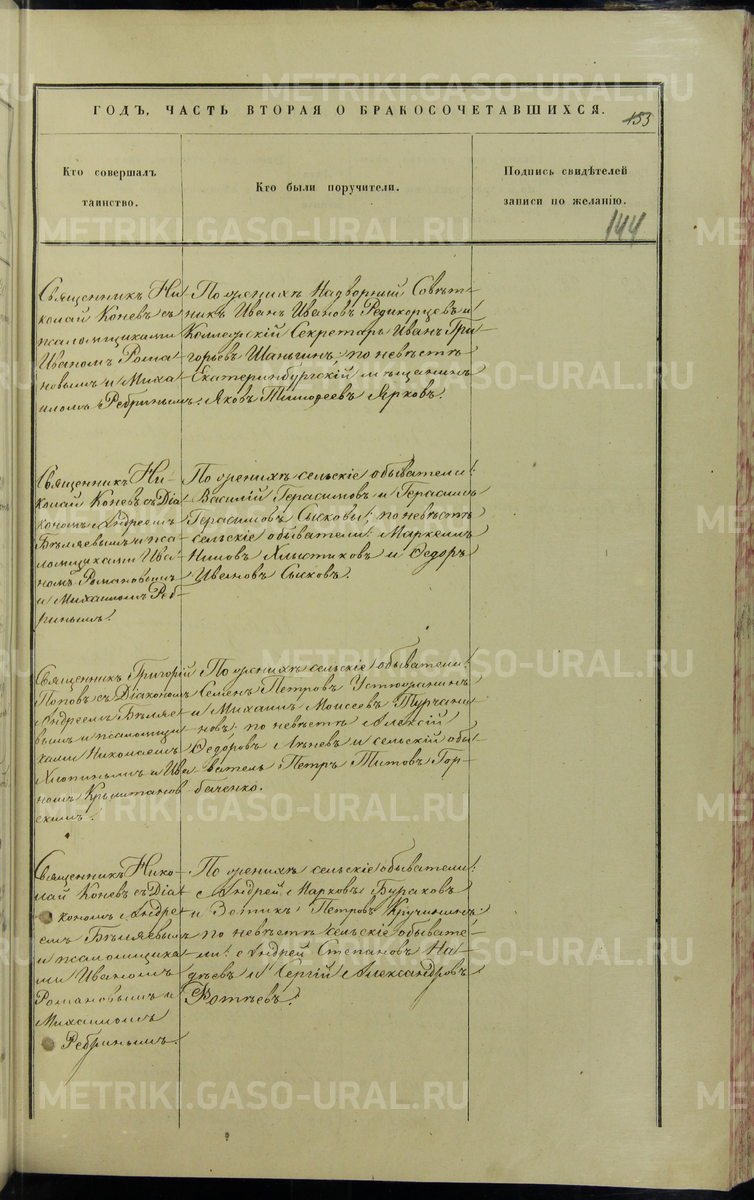 ГОДЪ, ЧАСТЬ ВТОРАЯ О БРАКОСОЧЕТАВШИХСЯ.
153
Кто совершалъ
таинство.
Кто были поручители.
Подпись свидѣтелей
записи по желанію.
144
Священникъ Ни-
колай Коневъ съ
псаломщиками
Иваномъ Рома-
новымъ и Миха-
иломъ Ребринымъ.
По женихѣ Надворный Совѣт-
никъ Иванъ Ивановъ Редикорцевъ и
Коллежскій Секретарь Иванъ Гри-
горьевъ Шаньгинъ; по невѣстѣ
Екатеринбургскій мѣщанинъ
Яковъ Тимофеевъ Ярковъ.
Священникъ Ни-
колай Коневъ съ Діа-
кономъ Андреемъ
Бѣляевымъ и пса-
ломщиками Ива-
номъ Романовымъ
и Михаиломъ Реб-
ринымъ.
По женихѣ сельскіе обыватели:
Василій Герасимовъ и Герасимъ
Герасимовъ Сысковы; по невѣстѣ
сельскіе обыватели: Маркеллъ
Ниловъ Хлыстиковъ и Ѳедоръ
Ивановъ Сысковъ.
Священникъ Григорій
Поповъ съ Діакономъ
Андреемъ Бѣляе-
вымъ и псаломщи-
ками Николаемъ
Хлопинымъ и Ива-
номъ
скимъ.
По женихѣ сельскіе обыватели:
Семенъ Петровъ Устюжанинъ
и Михаилъ Моисеевъ Турчани-
новъ; по невѣстѣ Алексій
Ѳедоровъ и сельскій обы-
ватель Петръ Титовъ Гор-
баченко.
Священникъ Нико-
лай Коневъ съ Діа-
кономъ Андре-
емъ Бѣляевымъ
и псаломщика-
ми Иваномъ
Романовымъ и
Михаиломъ
Ребринымъ.
По женихѣ сельскіе обыватели:
Андрей Марковъ Бураковъ
и Зотикъ Петровъ Кручининъ;
по невѣстѣ сельскіе обывате-
ли: Андрей Степановъ На-
дѣевъ и Сергій Александровъ
Фотѣевъ.
METRIKI.GASO-URAL.RU